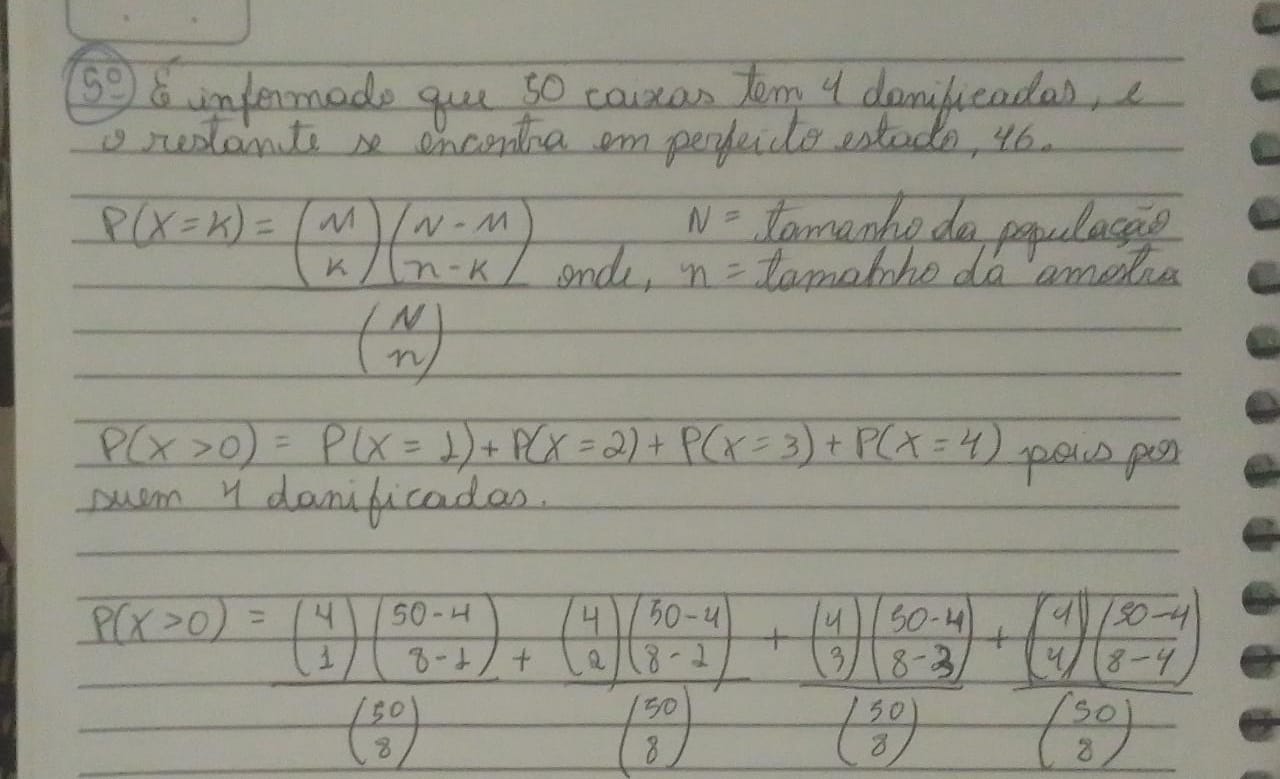 5º É informado que 50 caixas tem 4 danificadas, e
o restante se encontra em perfeito estado, 46.
P(X=K) = (M K)(N-M n-K) / (N n) onde, N = tamanho da população
n = tamanho da amostra
P(X>0) = P(X=1)+P(X=2)+P(X=3)+P(X=4) pois pos
suem 4 danificadas.
P(X>0) = (4 1)(50-4 8-1) / (50 8) + (4 2)(50-4 8-2) / (50 8) + (4 3)(50-4 8-3) / (50 8) + (4 4)(50-4 8-4) / (50 8)